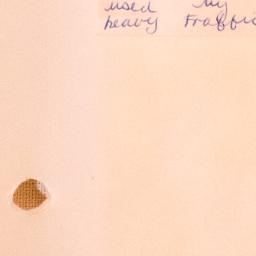 used by
heavy traffic